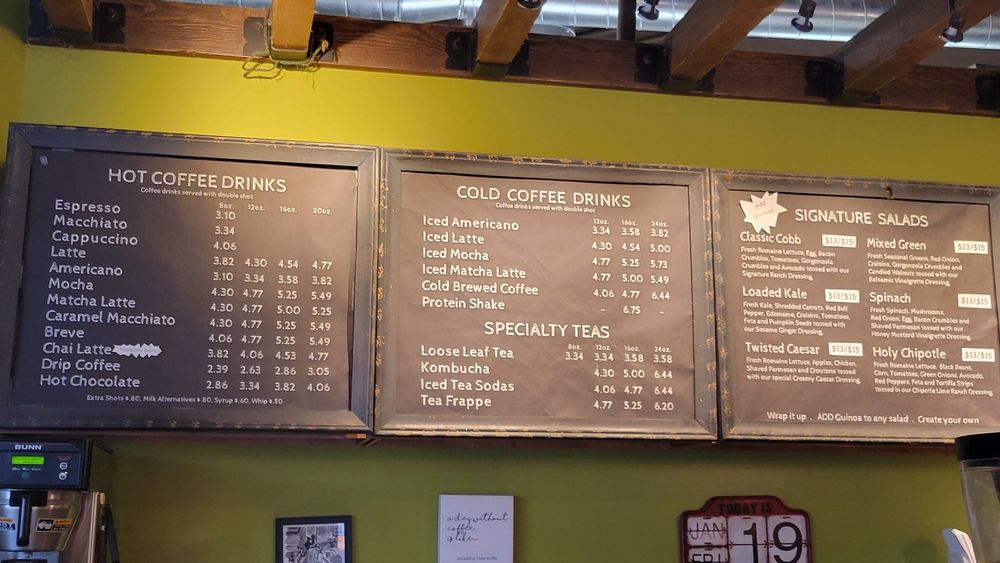 HOT COFFEE DRINKS
Coffee drinks served with double shot
8oz. 12oz. 16oz. 20oz.
Espresso 3.10
Macchiato 3.34
Cappuccino 4.06
Latte 3.82 4.30 4.54 4.77
Americano 3.10 3.34 3.58 3.82
Mocha 4.30 4.77 5.25 5.49
Matcha Latte 4.30 4.77 5.00 5.25
Caramel Macchiato 4.30 4.77 5.25 5.49
Breve 4.06 4.77 5.25 5.49
Chai Latte 3.82 4.06 4.53 4.77
Drip Coffee 2.39 2.63 2.86 3.05
Hot Chocolate 2.86 3.34 3.82 4.06
Extra Shots $.80, Milk Alternatives $.80, Syrup $.60, Whip $.50
COLD COFFEE DRINKS
Coffee drinks served with double shot
12oz. 16oz. 24oz.
Iced Americano 3.34 3.58 3.82
Iced Latte 4.30 4.54 5.00
Iced Mocha 4.77 5.25 5.73
Iced Matcha Latte 4.77 5.00 5.49
Cold Brewed Coffee 4.06 4.77 6.44
Protein Shake - 6.75 -
SPECIALTY TEAS
8oz. 12oz. 16oz. 24oz.
Loose Leaf Tea 3.34 3.34 3.58 3.58
Kombucha 4.30 5.00 6.44
Iced Tea Sodas 4.06 4.77 6.44
Tea Frappe 4.77 5.25 6.20
Add
Quinoa
SIGNATURE SALADS
Classic Cobb $13/$15
Fresh Romaine Lettuce, Egg, Bacon
Crumbles, Tomatoes, Gorgonzola
Crumbles and Avocado tossed with our
Signature Ranch Dressing.
Loaded Kale $13/$15
Fresh Kale, Shredded Carrots, Red Bell
Pepper, Edamame, Craisins, Tomatoes,
Feta and Pumpkin Seeds tossed with
our Sesame Ginger Dressing.
Twisted Caesar $13/$15
Fresh Romaine Lettuce, Apples, Chicken,
Shaved Parmesan and Croutons tossed
with our special Creamy Caesar Dressing.
Mixed Green $13/$15
Fresh Seasonal Greens, Red Onion,
Craisins, Gorgonzola Crumbles and
Candied Walnuts tossed with our
Balsamic Vinaigrette Dressing.
Spinach $13/$15
Fresh Spinach, Mushrooms,
Red Onion, Egg, Bacon Crumbles and
Shaved Parmesan tossed with our
Honey Mustard Vinaigrette Dressing.
Holy Chipotle $13/$15
Fresh Romaine Lettuce, Black Beans,
Corn, Tomatoes, Green Onions, Avocado,
Red Peppers, Feta and Tortilla Strips
tossed in our Chipotle Lime Ranch Dressing.
Wrap it up . ADD Quinoa to any salad . Create your own
BUNN
a day without
coffee
is like..
TODAY IS
JAN 19
FRI